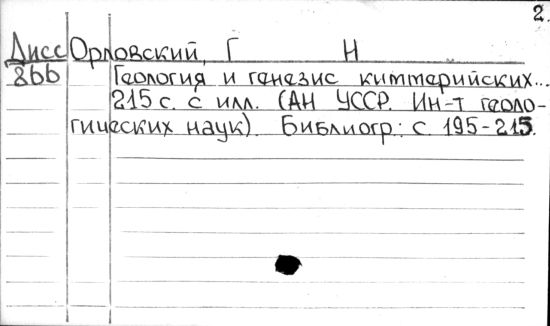 2.
Дисс Орловский, Г Н
866 Геология и генезис киммерийских...
215 с. с илл. (АН УССР. Ин-т геоло-
гических наук). Библиогр.: с. 195-215.